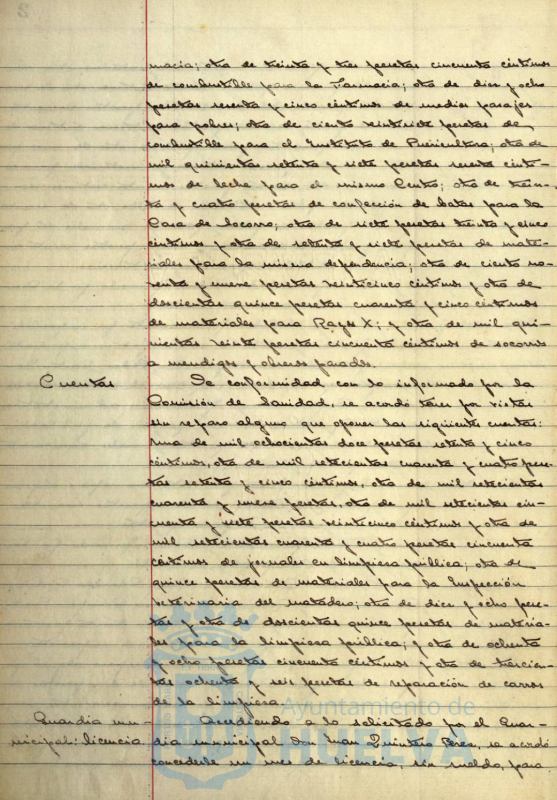 macia; otra de treinta y tres pesetas cincuenta céntimos
de combustible para la Farmacia; otra de diez y ocho
pesetas sesenta y cinco céntimos de medios pasajes
para pobres; otra de ciento veintisiete pesetas de
combustible para el Instituto de Puericultura; otra de
mil quinientas setenta y siete pesetas sesenta cénti-
mos de leche para el mismo Centro; otra de trein-
ta y cuatro pesetas de confección de batas para la
Casa de Socorro; otra de siete pesetas treinta y cinco
céntimos y otra de setenta y siete pesetas de mate-
riales para la misma dependencia; otra de ciento no-
venta y nueve pesetas veinticinco céntimos y otra de
doscientas quince pesetas cuarenta y cinco céntimos
de materiales para Rayos X; y otra de mil qui-
nientas veinte pesetas cincuenta céntimos de socorros
a mendigos y obreros parados.
Cuentas De conformidad con lo informado por la
Comisión de Sanidad, se acordó tener por vistas
sin reparo alguno que oponer las siguientes cuentas:
una de mil ochocientas doce pesetas setenta y cinco
céntimos, otra de mil setecientas cuarenta y cuatro pese-
tas setenta y cinco céntimos, otra de mil setecientas
cuarenta y nueve pesetas, otra de mil setecientas cin-
cuenta y siete pesetas veinticinco céntimos y otra de
mil setecientas cuarenta y cuatro pesetas cincuenta
céntimos de jornales en limpieza pública; otra de
quince pesetas de materiales para la Inspección
veterinaria del matadero; otra de diez y ocho pese-
tas y otra de doscientas quince pesetas de materia-
les para la limpieza pública; y otra de ochenta
y ocho pesetas cincuenta céntimos y otra de trescien-
tas ochenta y seis pesetas de reparación de carros
de la limpieza.
Guardia mu- Accediendo a lo solicitado por el Guar-
nicipal: licencia dia municipal Don Juan Quintero Pérez, se acordó
concederle un mes de licencia, sin sueldo, para
Ayuntamiento de
HUELVA